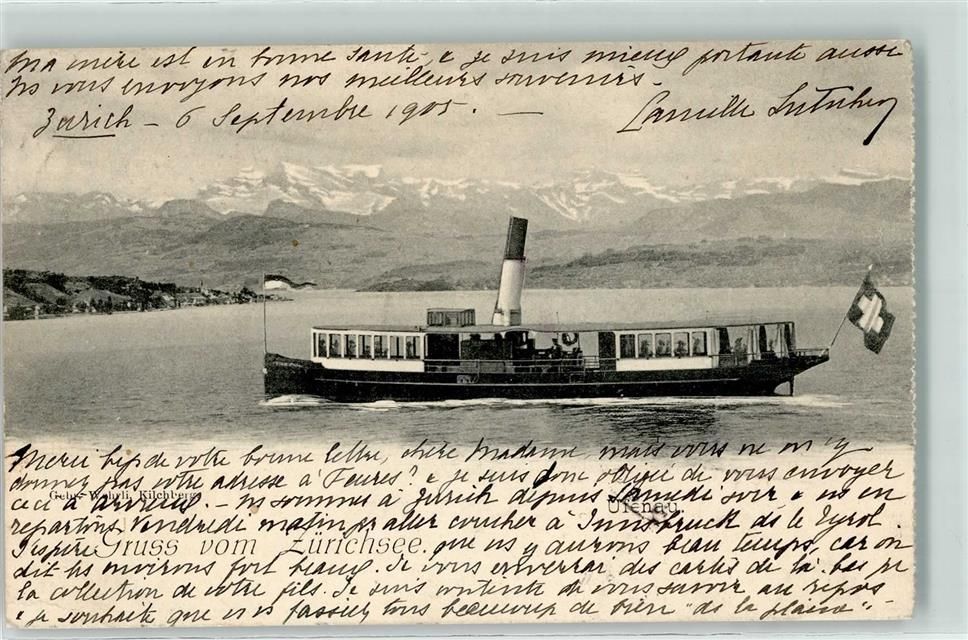 Ma mère est en bonne santé, & je suis mieux portante aussi
Ns vous envoyons nos meilleurs souvenirs.
Zurich - 6 Septembre 1905. - Camille
Merci bp de votre bonne lettre, chère Madame, mais vous ne m'y
donnez pas votre adresse à & je suis donc obligée de vous envoyer
ceci à - Ns sommes à Zurich depuis Samedi soir & ns en
Gebr. Wehrli, Kilchberg
Ufenau.
repartons Vendredi matin pr aller coucher à Innsbruck ds le Tyrol.
J'espère que ns y aurons beau temps, car on
Gruss vom Zürichsee.
dit les environs fort beaux. Je vous enverrai des cartes de là-bas pr
la collection de votre fils. Je suis contente de vous savoir au repos
& je souhaite que vs vs fassiez tous beaucoup de bien "de la plaine"-